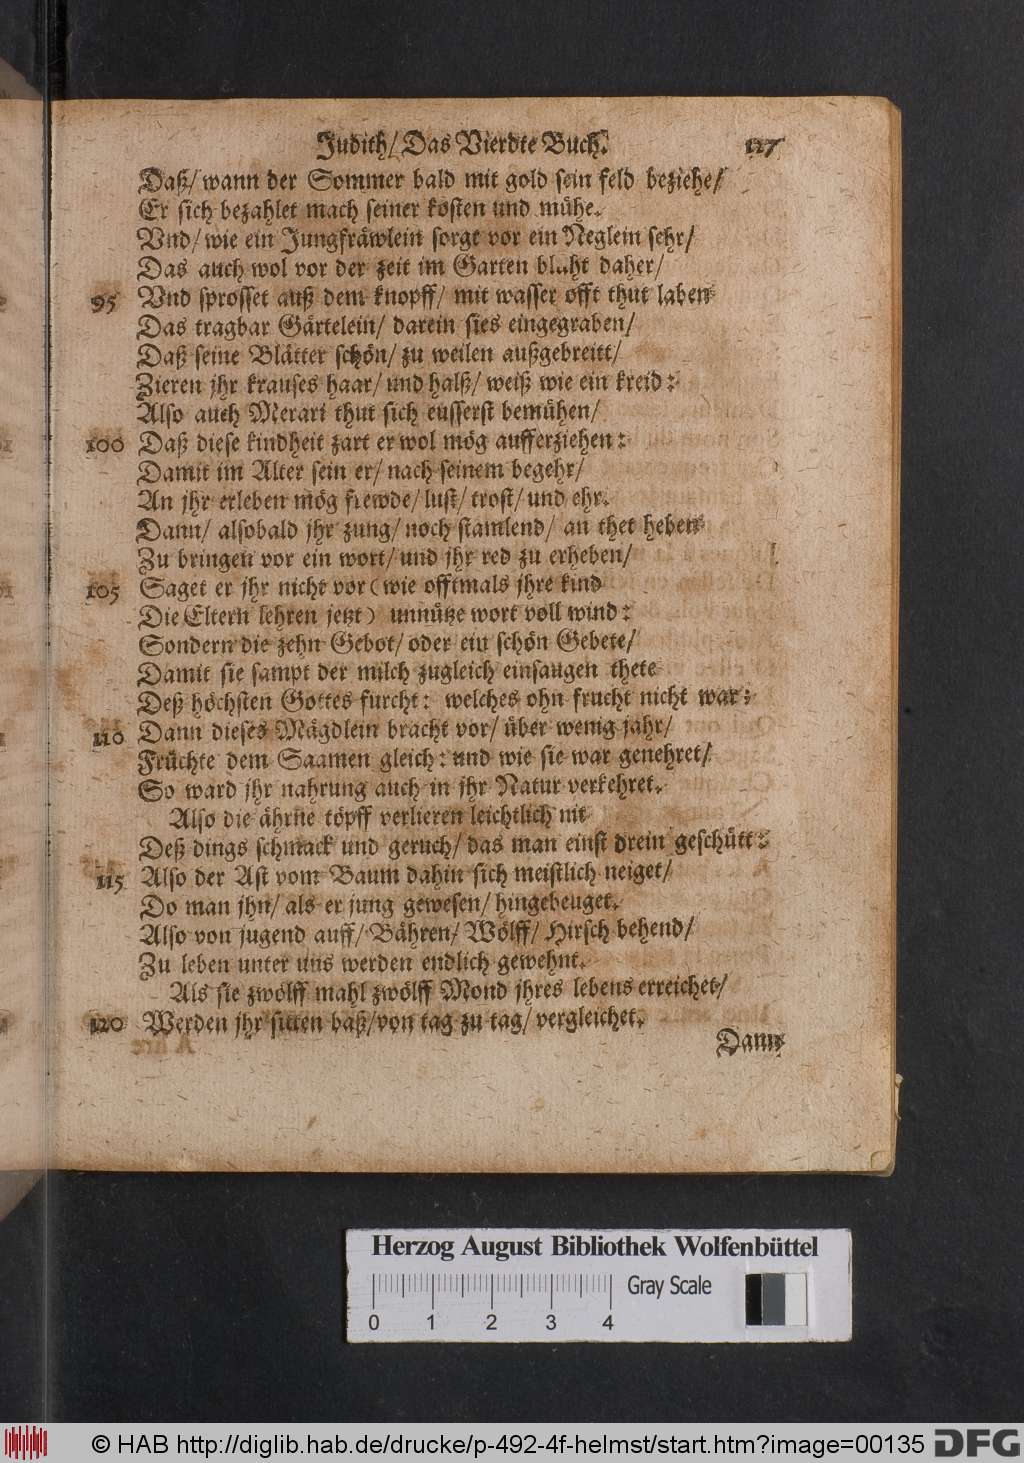 Judith/ Das Vierdte Buch. 127
Daß/ wann der Sommer bald mit gold sein feld beziehe/
Er sich bezahlet mach seiner kosten und mühe.
Vnd/ wie ein Jungfräwlein sorgt vor ein Neglein sehr/
Das auch wol vor der zeit im Garten blüht daher/
95 Vnd sprosset auß dem knopff/ mit wasser offt thut laben
Das tragbar Gärtelein/ darein sies eingegraben/
Daß seine Blätter schön/ zu weilen außgebreitt/
Zieren jhr krauses haar/ und halß/ weiß wie ein kreid:
Also auch Merari thut sich eusserst bemühen/
100 Daß diese kindheit zart er wol mög aufferziehen:
Damit im Alter sein er/ nach seinem begehr/
An jhr erleben mög frewde/ lust/ trost/ und ehr.
Dann/ alsobald jhr zung/ noch stamlend/ an thet heben
Zu bringen vor ein wort/ und jhr red zu erheben/
105 Saget er jhr nicht vor (wie offtmals jhre kind
Die Eltern lehren jetzt) unnütze wort voll wind:
Sondern die zehn Gebot/ oder ein schön Gebete/
Damit sie sampt der milch zugleich einsaugen thete
Deß höchsten Gottes furcht: welches ohn frucht nicht war:
110 Dann dieses Mägdlein bracht vor/ über wenig jahr/
Früchte dem Saamen gleich: und wie sie war genehret/
So ward jhr nahrung auch in jhr Natur verkehret.
Also die ährne töpff verlieren leichtlich nit
Deß dings schmack und geruch/ das man einst drein geschütt:
115 Also der Ast vom Baum dahin sich meistlich neiget/
Do man jhn/ als er jung gewesen/ hingebeuget.
Also von jugend auff/ Bähren/ Wölff/ Hirsch behend/
Zu leben unter uns werden endlich gewehnt.
Als sie zwölff mahl zwölff Mond jhres lebens erreichet/
120 Werden jhr sitten baß/ von tag zu tag/ vergleichet.
Dann
Herzog August Bibliothek Wolfenbüttel
Gray Scale
0 1 2 3 4
© HAB http://diglib.hab.de/drucke/p-492-4f-helmst/start.htm?image=00135 DFG